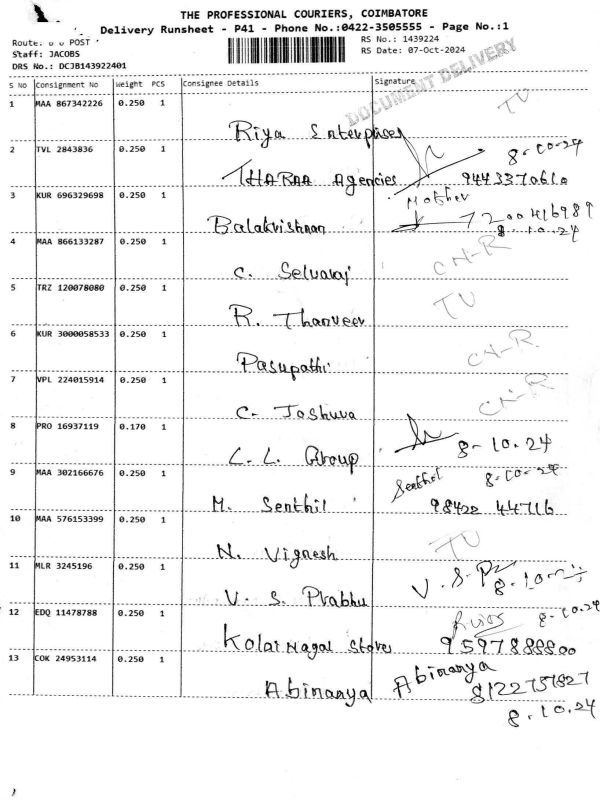 THE PROFESSIONAL COURIERS, COIMBATORE
Delivery Runsheet - P41 - Phone No.:0422-3505555 - Page No.:1
Route: POST RS No.: 1439224
Staff: JACOBS RS Date: 07-Oct-2024
DRS No.: DCJB143922401
DOCUMENT DELIVERY
S No Consignment No Weight PCS Consignee Details Signature
1 MAA 867342226 0.250 1 Riya Enterprises TU
2 TVL 2843836 0.250 1 THARAA Agencies 8-10-24
9443370610
3 KUR 696329698 0.250 1 Balakrishnan Mother
7200416989
8.10.24
4 MAA 866133287 0.250 1 C. Selvaraj CN-R
5 TRZ 120078080 0.250 1 R. Thanveer TU
6 KUR 3000058533 0.250 1 Pasupathi CN-R
7 VPL 224015914 0.250 1 C. Joshuva CN-R
8 PRO 16937119 0.170 1 L.L. Group 8-10.24
9 MAA 302166676 0.250 1 M. Senthil Senthil 8-10-24
98422 44716
10 MAA 576153399 0.250 1 N. Vignesh TU
11 MLR 3245196 0.250 1 V. S. Prabhu V.S.P
12 EDQ 11478788 0.250 1 Kolai Nagal Stores 8-10.24
9597888800
13 COK 24953114 0.250 1 Abinanya Abinanya
8122757827
8.10.24